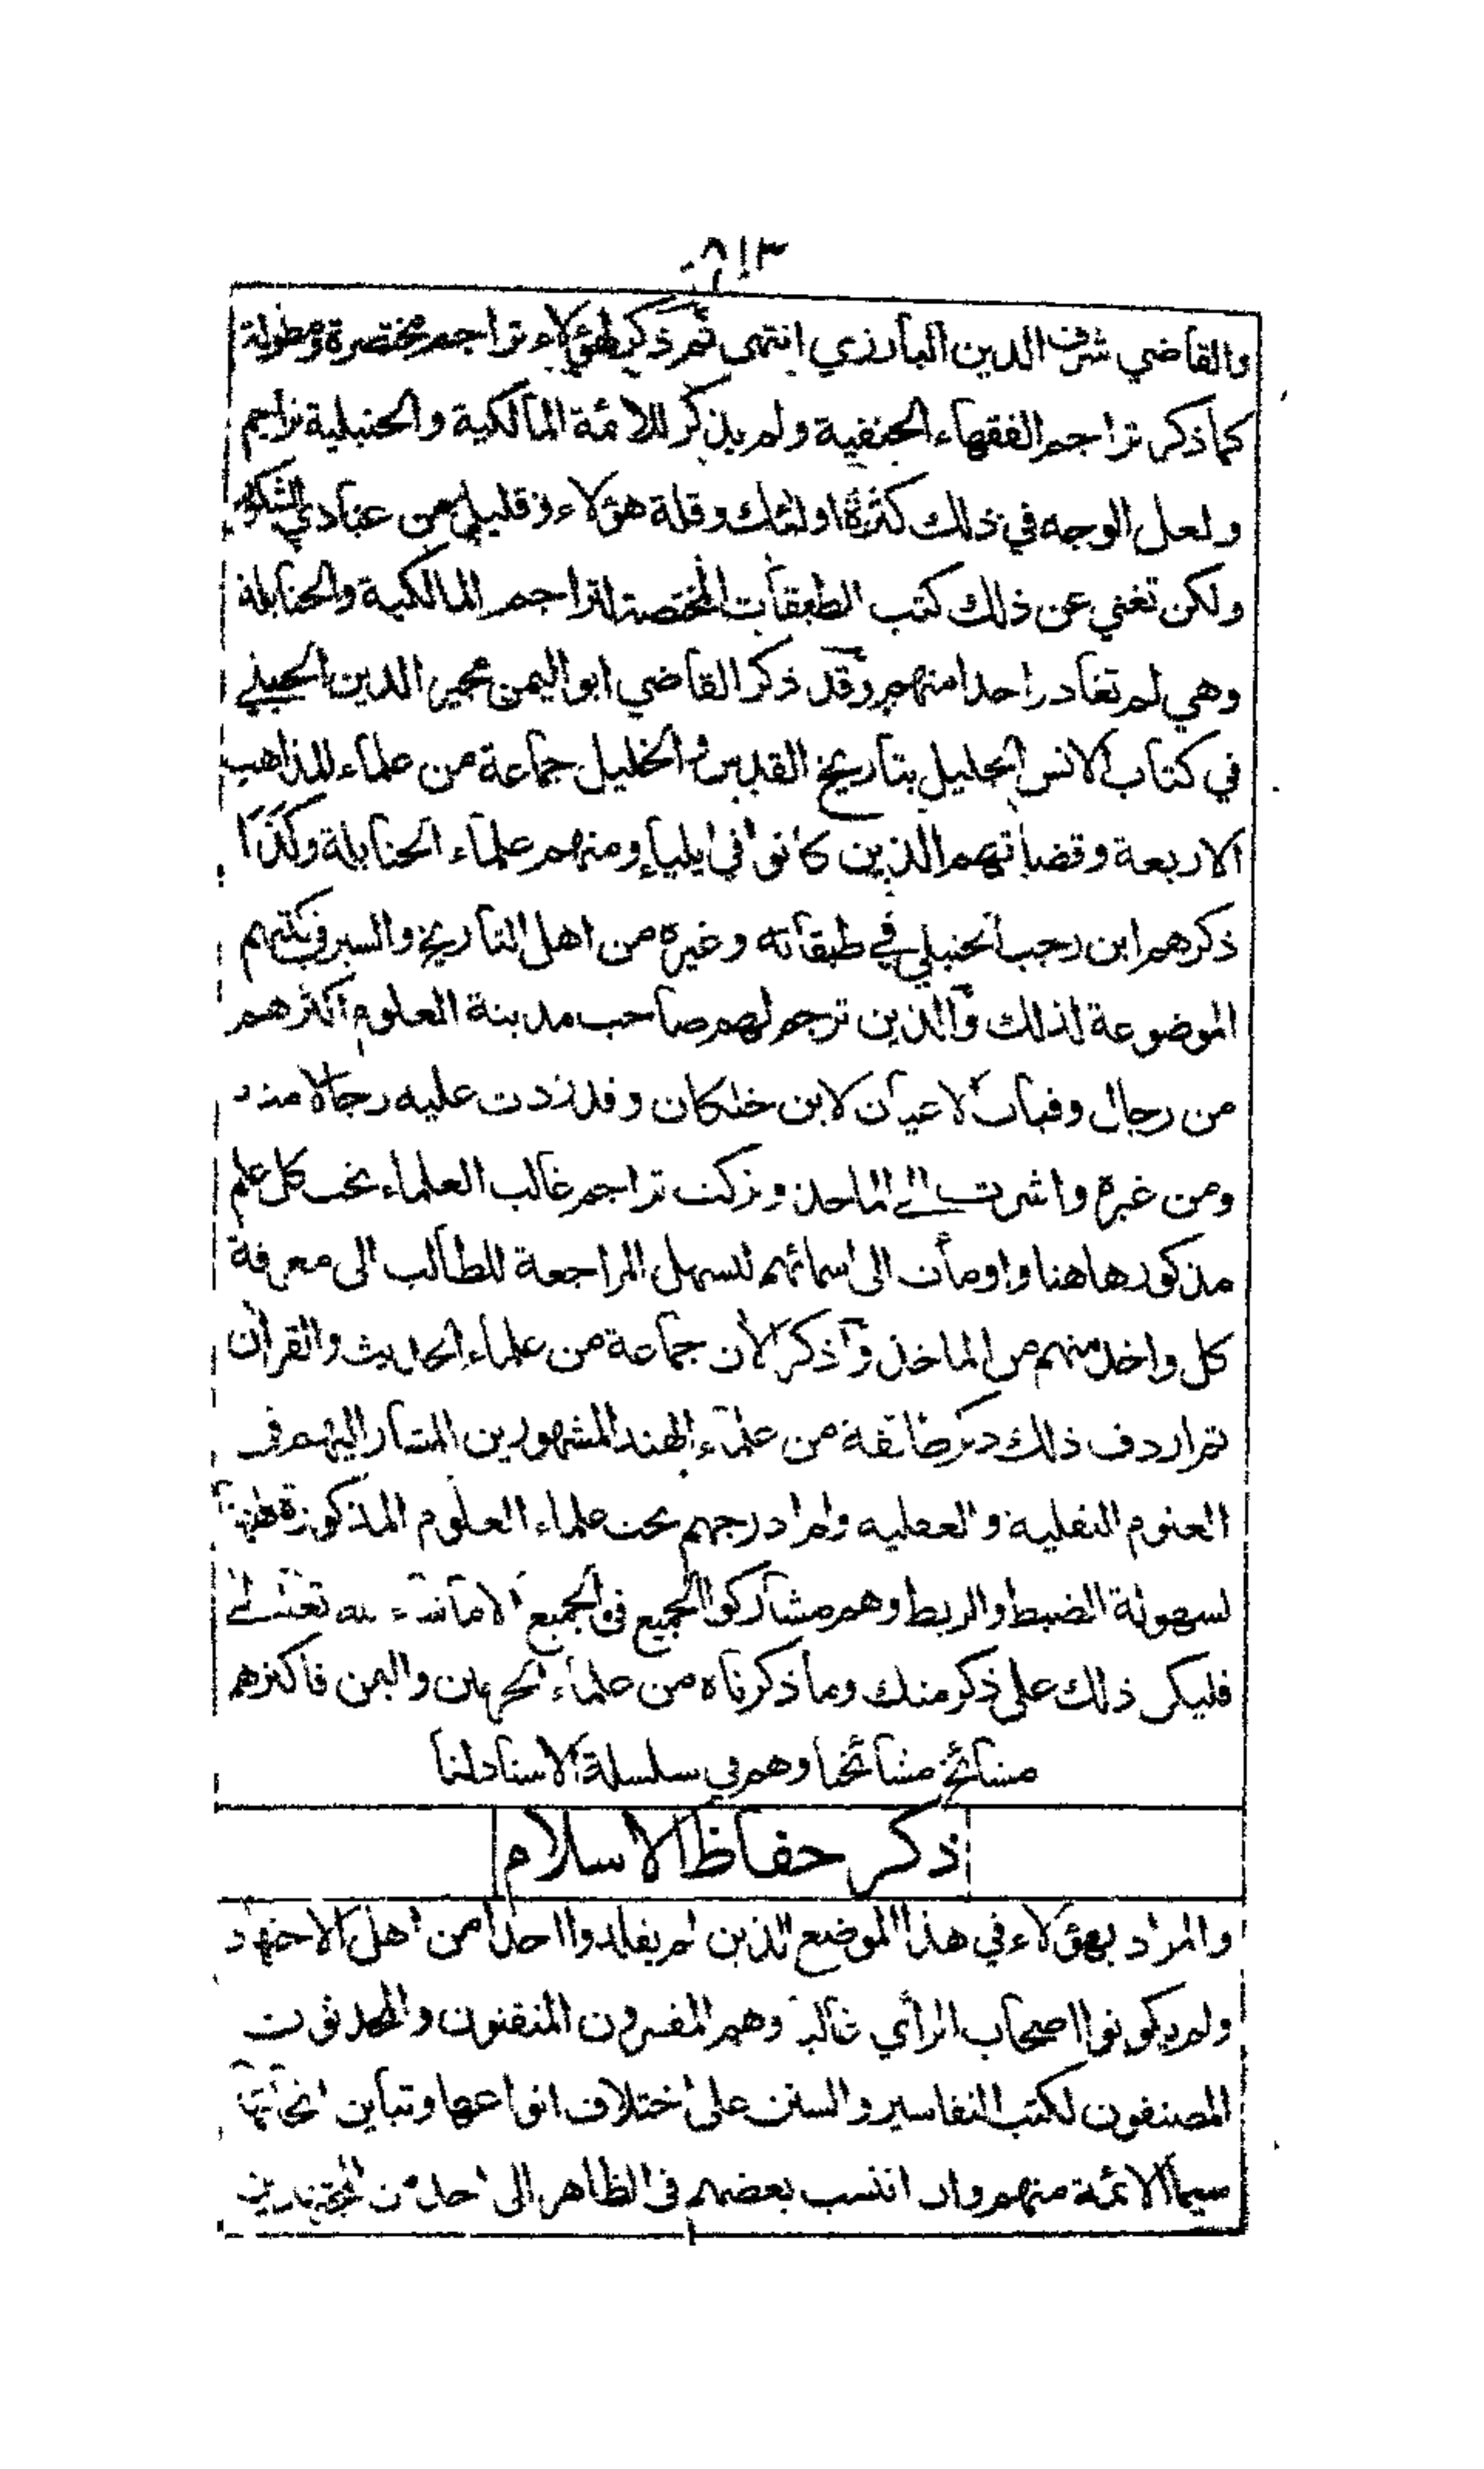 ٨١٣
والقاضي شرف الدين البارزي انتهى ثم ذكر لهؤلاء تراجم مختصرة ومطولة
كما ذكر تراجم الفقهاء الحنفية ولم يذكر للائمة المالكية والحنبلية تراجم
ولعل الوجه في ذلك كثرة اولئك وقلة هؤلاء وقليل من عبادي الشكور
ولكن تغني عن ذلك كتب الطبقات المختصة لتراجم المالكية والحنابلة
وهي لم تغادر احدا منهم وقد ذكر القاضي ابو اليمن مجير الدين الحنبلي
في كتاب الانس الجليل بتاريخ القدس والخليل جماعة من علماء المذاهب
الاربعة وقضاتهم الذين كانوا في ايلياء ومنهم علماء الحنابلة وكذا
ذكرهم ابن رجب الحنبلي في طبقاته وغيره من اهل التاريخ والسير في كتبهم
الموضوعة لذلك والذين ترجم لهم صاحب مدينة العلوم اكثرهم
من رجال وفيات الاعيان لابن خلكان وقد زدت عليه رجالا منه
ومن غيره واشرت الى المآخذ وتركت تراجم غالب العلماء تحت كل علم
مذكور هاهنا واومأت الى اسمائهم لتسهل المراجعة للطالب الى معرفة
كل واحد منهم من المآخذ وآذكر الآن جماعة من علماء الحديث والقرآن
ثم اردف ذلك ذكر طائفة من علماء الهند المشهورين المشار اليهم في
العلوم النقلية والعقلية ولم ادرجهم تحت علماء العلوم المذكورة ههنا
لسهولة الضبط والربط وهم مشاركوا الجميع في الجميع الا ماشاء الله تعالى
فليكن ذلك على ذكر منك وما ذكرناه من علماء الحرمين واليمن فاكثرهم
مشائخ مشائخنا وهم في سلسلة الاسناد لنا
ذكر حفاظ الاسلام
والمراد بهؤلاء في هذا الموضع الذين لم يقلدوا احدا من اهل الاجتهاد
ولم يكونوا اصحاب الرأي غالبا وهم المفسرون المتقنون والمحدثون
المصنفون لكتب التفاسير والسنن على اختلاف انواعها وتباين انحائها
سيما الائمة منهم وان انتسب بعضهم في الظاهر الى احد من المجتهدين